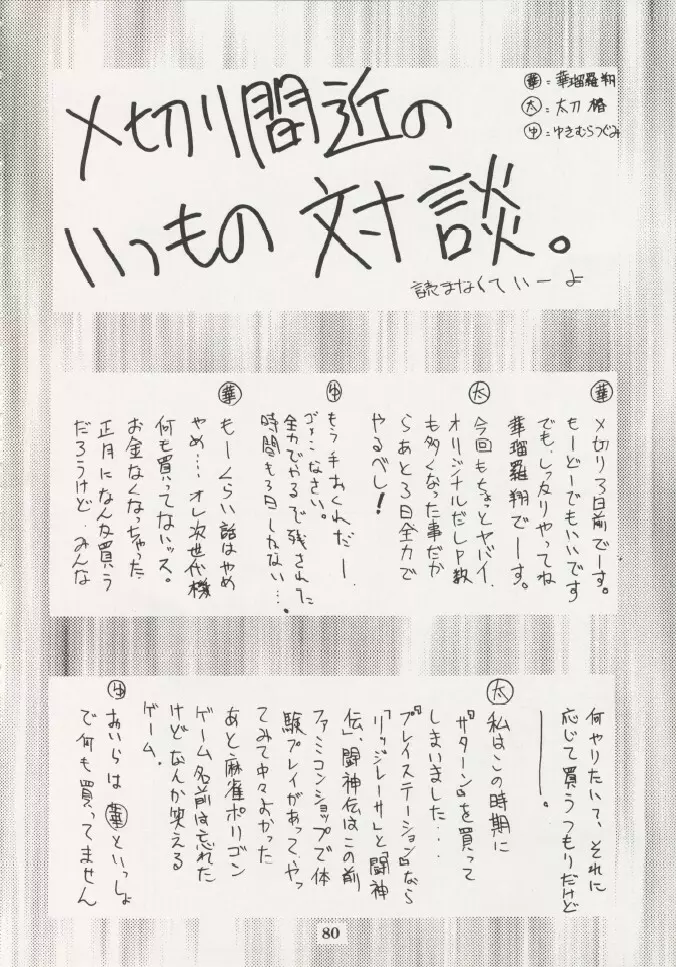 〆切り間近の
いつもの対談。
読まなくてい一よ
華=華瑠羅翔
太=太刀椿
ゆ=ゆきむらつぐみ
華
〆切り3日前でーす。
もーどーでもいいです
でも、しっかりやってね
華瑠羅翔でーす。
太
今回もちょっとヤバイ、
オリジナルだしP数
も多くなった事だか
らあと3日全力で
やるべし!
ゆ
もう手おくれだー
ゴメンなさい。
全力でやるで残された
時間も3日しかない…。
華
もーくらい話はやめ
やめ…オレ次世代機
何も買ってないッス。
お金なくなっちゃった
正月になんか買う
だろうけど、みんな
何やりたいて、それに
応じて買うつもりだけど
――。
太
私はこの時期に
『サターン』を買って
しまいました…
『プレイステーション』なら
「リッジレーサ」と「闘神
伝」、闘神伝はこの前
ファミコンショップで体
験プレイがあって、やっ
てみて中々よかった
あと麻雀ポリゴン
ゲーム名前は忘れた
けどなんか笑える
ゲーム。
ゆ
おいらは華といっしょ
で何も買ってません
80